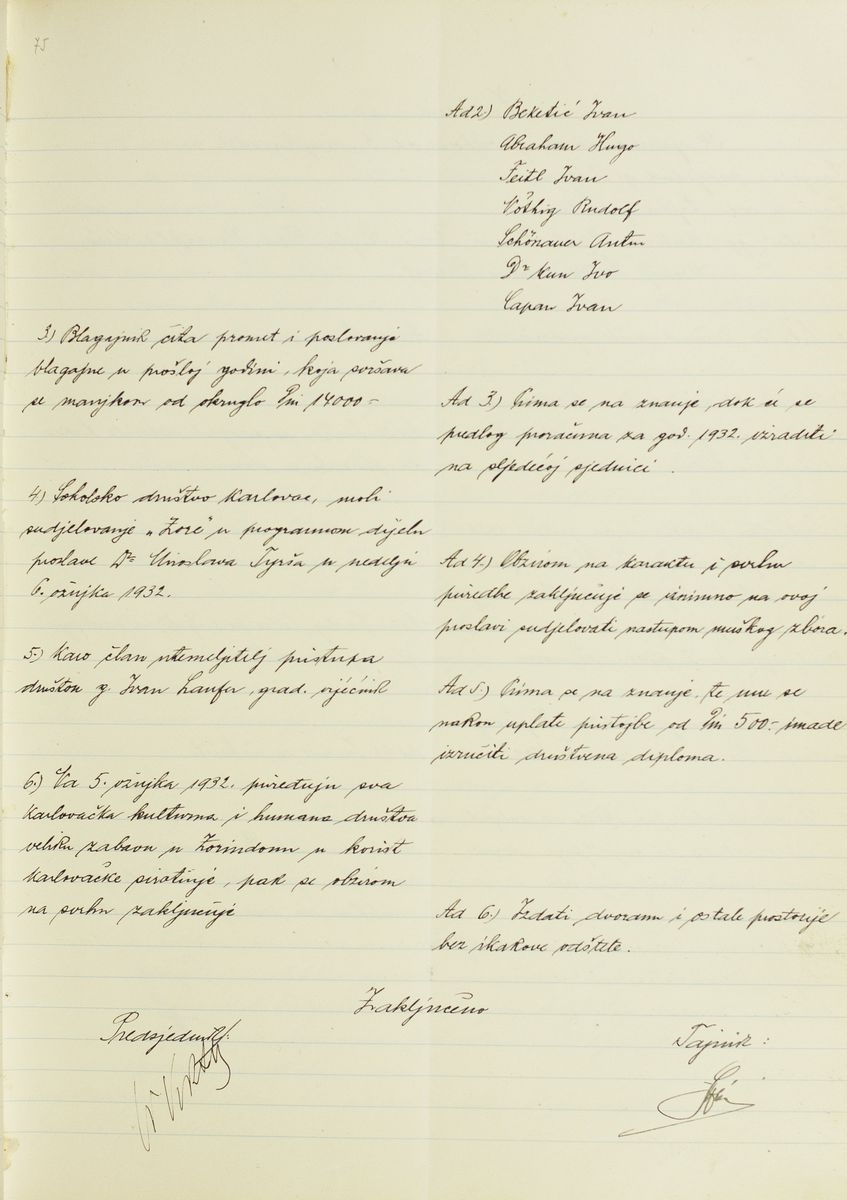 75
Ad 2.) Beketić Ivan
Abraham Hugo
Feitl Ivan
Vöthig Rudolf
Schönauer Antun
Dr Kun Ivo
Capan Ivan
3.) Blagajnik čita promet i poslovanje
blagajne u prošloj godini, koja svršava
se manjkom od okruglo Din 14000.-
Ad 3.) Prima se na znanje, dok će se
predlog proračuna za god. 1932. izraditi
na sljedećoj sjednici.
4.) Sokolsko društvo Karlovac, moli
sudjelovanje "Zore" u programnom dijelu
proslave Dra Miroslava Tyrša u nedelju
6. ožujka 1932.
Ad 4.) Obzirom na karakter i svrhu
priredbe zaključuje se jednoglasno na ovoj
proslavi sudjelovati nastupom muškog zbora.
5.) Kao član utemeljitelj pristupa
društvu g. Ivan Laufer, grad. vijećnik
Ad 5.) Prima se na znanje, te mu se
nakon uplate pristojbe od Din 500.- imade
izručiti društvena diploma.
6.) Na 5. ožujka 1932. priređuju sva
karlovačka kulturna i humana društva
veliku zabavu u Zorindomu u korist
karlovačke sirotinje, pak se obzirom
na svrhu zaključuje
Ad 6.) Izdati dvoranu i ostale prostorije
bez ikakove odštete.
Zaključeno
Predsjednik:
Tajnik: